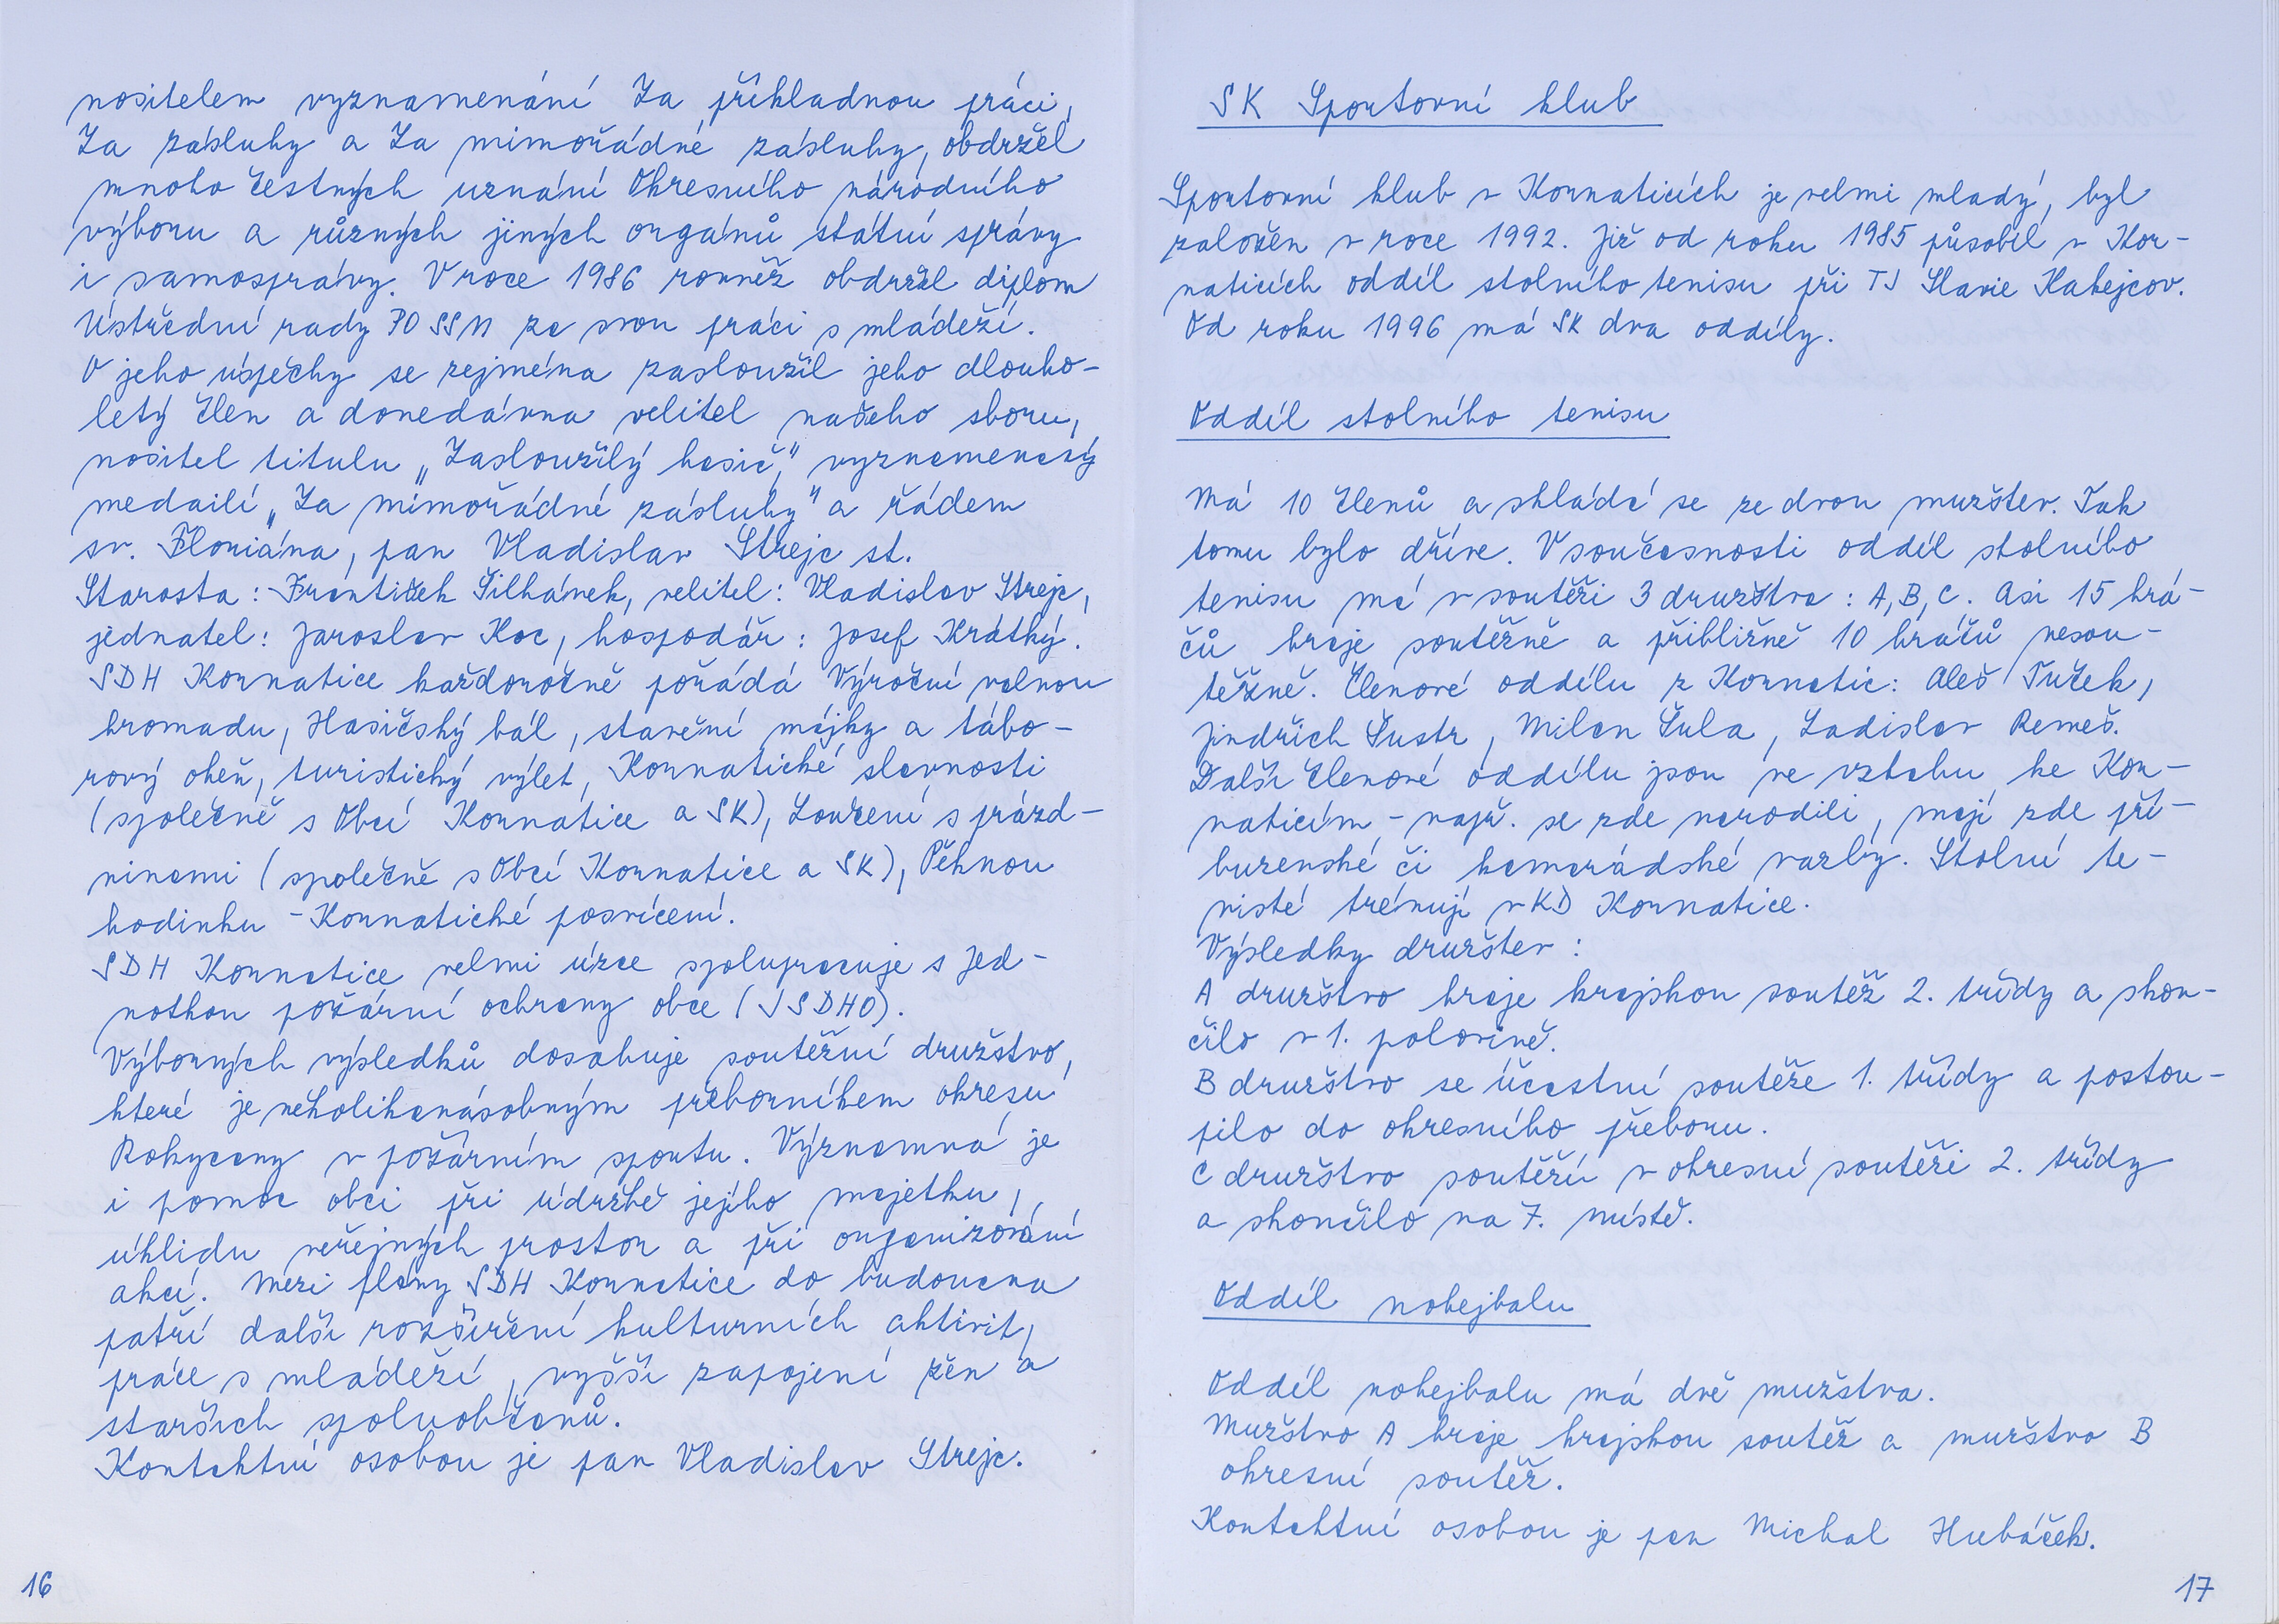 nositelem vyznamenání Za příkladnou práci,
Za zásluhy a Za mimořádné zásluhy, obdržel
mnoho čestných uznání Okresního národního
výboru a různých jiných orgánů státní správy
i samosprávy. V roce 1986 rovněž obdržel diplom
Ústřední rady PO SSM za svou práci s mládeží.
O jeho úspěchy se zejména zasloužil jeho dlouho-
letý člen a donedávna velitel našeho sboru,
nositel titulu „Zasloužilý hasič," vyznamenaný
medailí „Za mimořádné zásluhy" a řádem
sv. Floriána, pan Vladislav Strejc st.
Starosta: František Šilhánek, velitel: Vladislav Strejc,
jednatel: Jaroslav Koc, hospodář: Josef Krátký.
SDH Kornatice každoročně pořádá Výroční valnou
hromadu, Hasičský bál, stavění májky a tábo-
rový oheň, turistický výlet, Kornatické slavnosti
(společně s Obcí Kornatice a SK), Loučení s prázd-
ninami (společně s Obcí Kornatice a SK), Pěknou
hodinku - Kornatické posvícení.
SDH Kornatice velmi úzce spolupracuje s Jed-
notkou požární ochrany obce (JSDHO).
Výborných výsledků dosahuje soutěžní družstvo,
které je několikanásobným přeborníkem okresu
Rokycany v požárním sportu. Významná je
i pomoc obci při údržbě jejího majetku,
úklidu veřejných prostor a při organizování
akcí. Mezi plány SDH Kornatice do budoucna
patří další rozšíření kulturních aktivit,
práce s mládeží, vyšší zapojení žen a
starších spoluobčanů.
Kontaktní osobou je pan Vladislav Strejc.
16
SK Sportovní klub
Sportovní klub v Kornaticích je velmi mladý, byl
založen v roce 1992. Již od roku 1985 působil v Kor-
naticích oddíl stolního tenisu při TJ Slavie Kakejcov.
Od roku 1996 má SK dva oddíly.
Oddíl stolního tenisu
Má 10 členů a skládá se ze dvou mužstev. Tak
tomu bylo dříve. V současnosti oddíl stolního
tenisu má v soutěži 3 družstva: A, B, C. Asi 15 hrá-
čů hraje soutěžně a přibližně 10 hráčů nesou-
těžně. Členové oddílu z Kornatic: Aleš Tužek,
Jindřich Šustr, Milan Šula, Ladislav Remeš.
Další členové oddílu jsou ve vztahu ke Kor-
naticím - např. se zde narodili, mají zde pří-
buzenské či kamarádské vazby. Stolní te-
nisté trénují v KD Kornatice.
Výsledky družstev:
A družstvo hraje krajskou soutěž 2. třídy a skon-
čilo v 1. polovině.
B družstvo se účastní soutěže 1. třídy a postou-
pilo do okresního přeboru.
C družstvo soutěží v okresní soutěži 2. třídy
a skončilo na 7. místě.
Oddíl nohejbalu
Oddíl nohejbalu má dvě mužstva.
Mužstvo A hraje krajskou soutěž a mužstvo B
okresní soutěž.
Kontaktní osobou je pan Michal Hubáček.
17